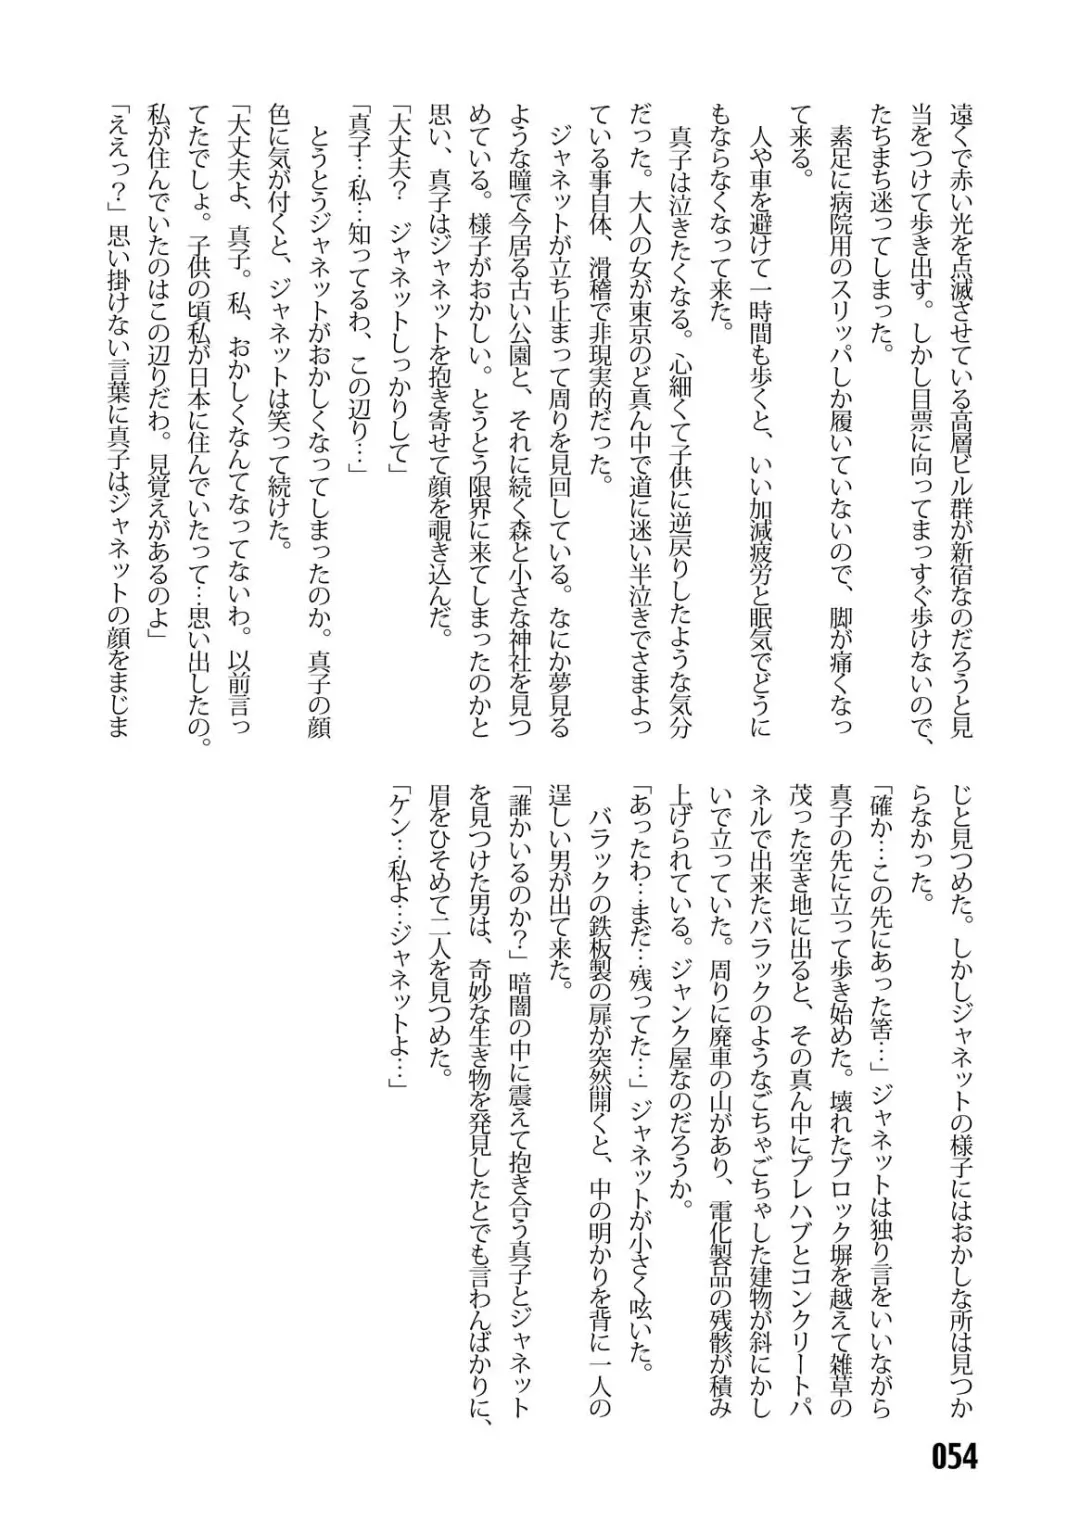 遠くで赤い光を点滅させている高層ビル群が新宿なのだろうと見
当をつけて歩き出す。しかし目票に向ってまっすぐ歩けないので、
たちまち迷ってしまった。
　素足に病院用のスリッパしか履いていないので、脚が痛くなっ
て来る。
　人や車を避けて一時間も歩くと、いい加減疲労と眠気でどうに
もならなくなって来た。
　真子は泣きたくなる。心細くて子供に逆戻りしたような気分
だった。大人の女が東京のど真ん中で道に迷い半泣きでさまよっ
ている事自体、滑稽で非現実的だった。
　ジャネットが立ち止まって周りを見回している。なにか夢見る
ような瞳で今居る古い公園と、それに続く森と小さな神社を見つ
めている。様子がおかしい。とうとう限界に来てしまったのかと
思い、真子はジャネットを抱き寄せて顔を覗き込んだ。
「大丈夫？　ジャネットしっかりして」
「真子…私…知ってるわ、この辺り…」
　とうとうジャネットがおかしくなってしまったのか。真子の顔
色に気が付くと、ジャネットは笑って続けた。
「大丈夫よ、真子。私、おかしくなんてなってないわ。以前言っ
てたでしょ。子供の頃私が日本に住んでいたって…思い出したの。
私が住んでいたのはこの辺りだわ。見覚えがあるのよ」
「ええっ？」思い掛けない言葉に真子はジャネットの顔をまじま
じと見つめた。しかしジャネットの様子にはおかしな所は見つか
らなかった。
「確か…この先にあった筈…」ジャネットは独り言をいいながら
真子の先に立って歩き始めた。壊れたブロック塀を越えて雑草の
茂った空き地に出ると、その真ん中にプレハブとコンクリートパ
ネルで出来たバラックのようなごちゃごちゃした建物が斜にかし
いで立っていた。周りに廃車の山があり、電化製品の残骸が積み
上げられている。ジャンク屋なのだろうか。
「あったわ…まだ…残ってた…」ジャネットが小さく呟いた。
　バラックの鉄板製の扉が突然開くと、中の明かりを背に一人の
逞しい男が出て来た。
「誰かいるのか？」暗闇の中に震えて抱き合う真子とジャネット
を見つけた男は、奇妙な生き物を発見したとでも言わんばかりに、
眉をひそめて二人を見つめた。
「ケン…私よ…ジャネットよ…」
054